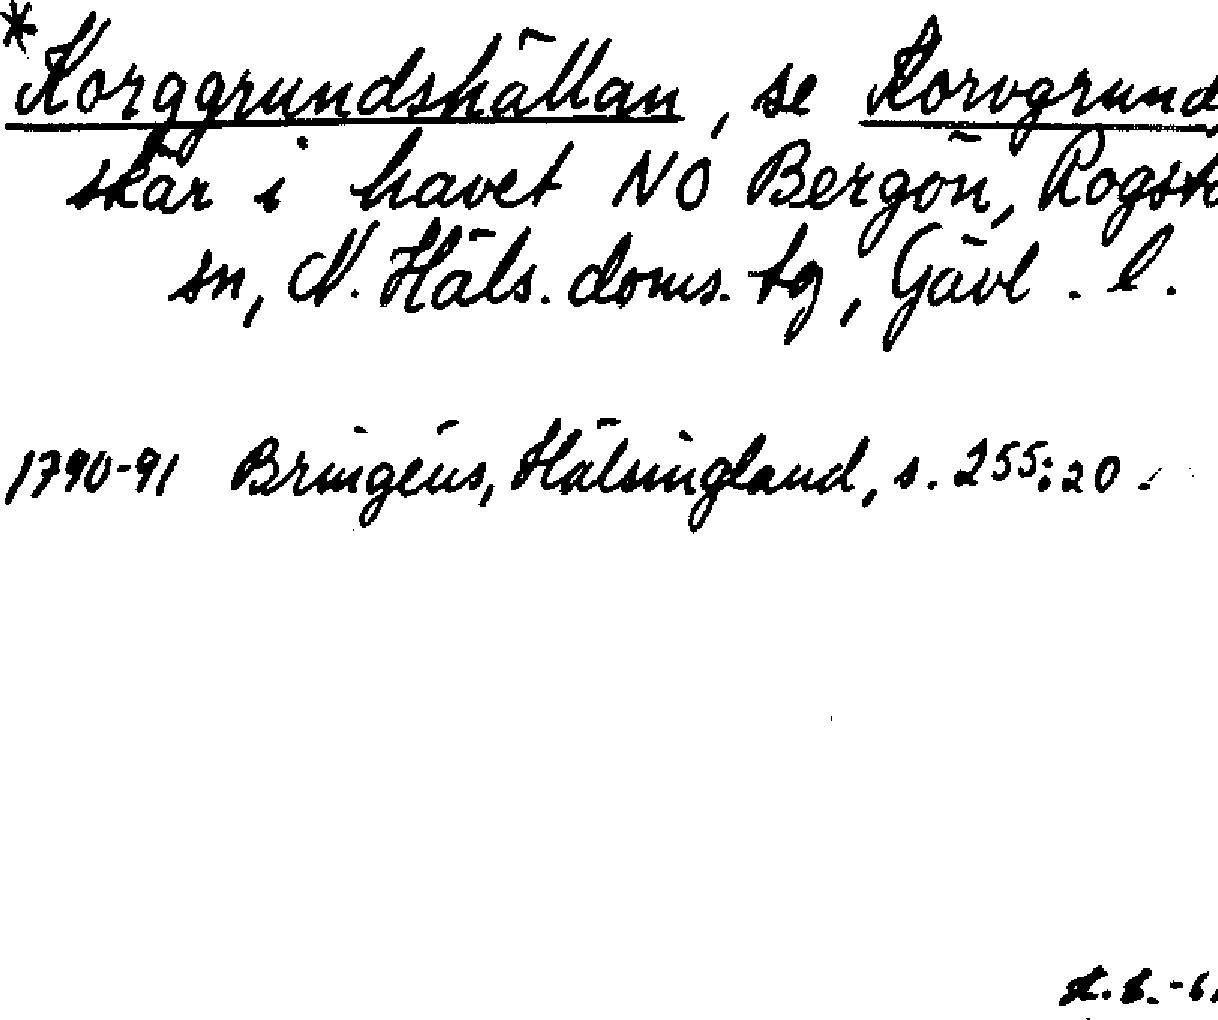 *Korggrundshällan, se Korvgrund
skär i havet NO Bergön, Rogst
sn, N. Häls. doms. tg, Gävl. l.
1790-91 Bringéus, Hälsingland, s. 255:20.